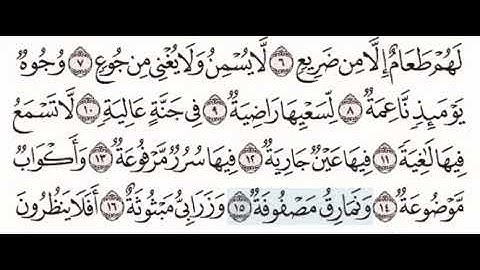 لَهُمْ طَعَامٌ إِلَّا مِن ضَرِيعٍ ٦ لَّا يُسْمِنُ وَلَا يُغْنِى مِن جُوعٍ ٧ وُجُوهٌ
يَوْمَئِذٍ نَّاعِمَةٌ ٨ لِّسَعْيِهَا رَاضِيَةٌ ٩ فِى جَنَّةٍ عَالِيَةٍ ١٠ لَّا تَسْمَعُ
فِيهَا لَٰغِيَةً ١١ فِيهَا عَيْنٌ جَارِيَةٌ ١٢ فِيهَا سُرُرٌ مَّرْفُوعَةٌ ١٣ وَأَكْوَابٌ
مَّوْضُوعَةٌ ١٤ وَنَمَارِقُ مَصْفُوفَةٌ ١٥ وَزَرَابِىُّ مَبْثُوثَةٌ ١٦ أَفَلَا يَنظُرُونَ